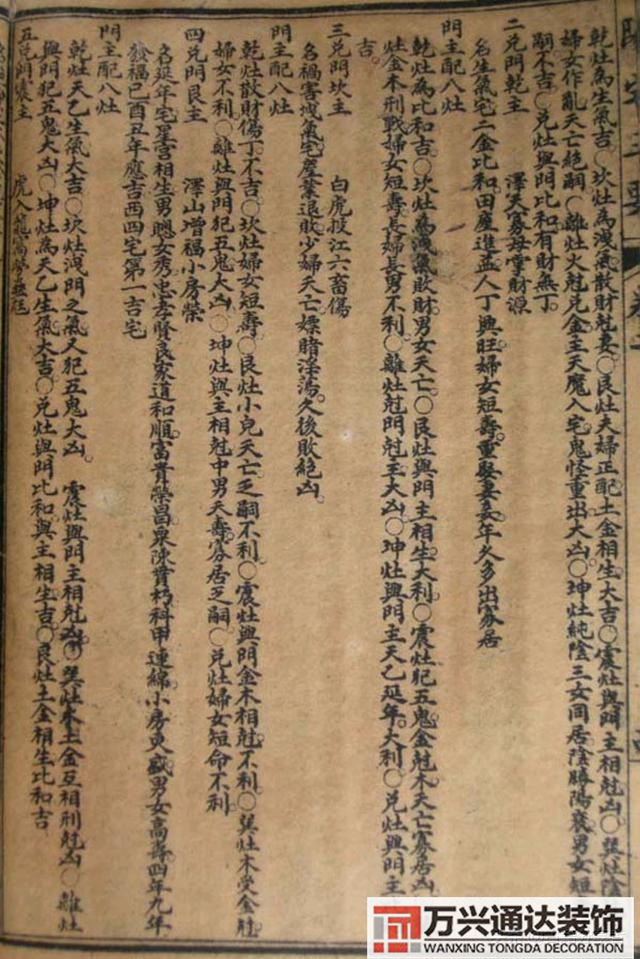 陽宅三要 卷二
乾灶為生氣吉〇坎灶為洩氣散財尅妻〇艮灶夫婦正配土金相生大吉〇震灶與門主相尅凶〇巽灶陰
婦女作亂夭亡絕嗣〇離灶火尅兌金主天魔入宅鬼怪重出大凶〇坤灶純陰三女同居陰勝陽衰男女短
嗣不吉〇兌灶與門比和有財無丁
二兌門乾主 澤天寡母掌財源
名生氣宅二金比和田產進益人丁興旺婦女短壽重娶妻妾年久多出寡居
門主配八灶
乾灶為比和吉〇坎灶為洩氣敗財男女夭亡〇艮灶與門主相生大利〇震灶犯五鬼金尅木夭亡寡居凶〇
灶金木刑戰婦女短壽長婦長男不利〇離灶尅門尅主大凶〇坤灶與門主天乙延年大利〇兌灶與門主
吉
三兌門坎主 白虎投江六畜傷
名禍害洩氣宅產業退敗少婦夭亡嫖賭淫蕩久後敗絕凶
門主配八灶
乾灶散財傷丁不吉〇坎灶婦女短壽〇艮灶小兒夭亡乏嗣不利〇震灶與門金木相尅不利〇巽灶木受金尅
婦女不利〇離灶與門犯五鬼大凶〇坤灶與主相尅中男夭壽寡居乏嗣〇兌灶婦女短命不利
四兌門艮主 澤山增福小房榮
名延年宅星宮相生男聰女秀忠孝賢良家道和順富貴榮昌粟陳貫朽科甲連綿小房更盛男女高壽四年九年
發福巳酉丑年應吉西四宅第一吉宅
門主配八灶
乾灶天乙生氣大吉〇坎灶洩門之氣又犯五鬼大凶 震灶與門主相尅凶〇巽灶木土金互相刑尅凶〇離灶
與門犯五鬼大凶〇坤灶為天乙生氣大吉〇兌灶與門比和與主相生吉〇艮灶土金相生比和吉
五兌門震主 虎入龍窩
万兴通达装饰
WANXING TONGDA DECORATION